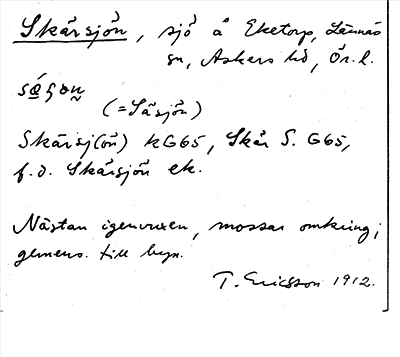 Skårsjön, sjö å Eketorp, Lännäs
sn, Askers hd, Ör. l.
(=Såsjön)
Skårsj(ön) kG65, Skår S. G65,
f.d. Skårsjön ek.
Nästan igenvuxen, mossar omkring;
gemens. till byn.
T. Ericsson 1912.